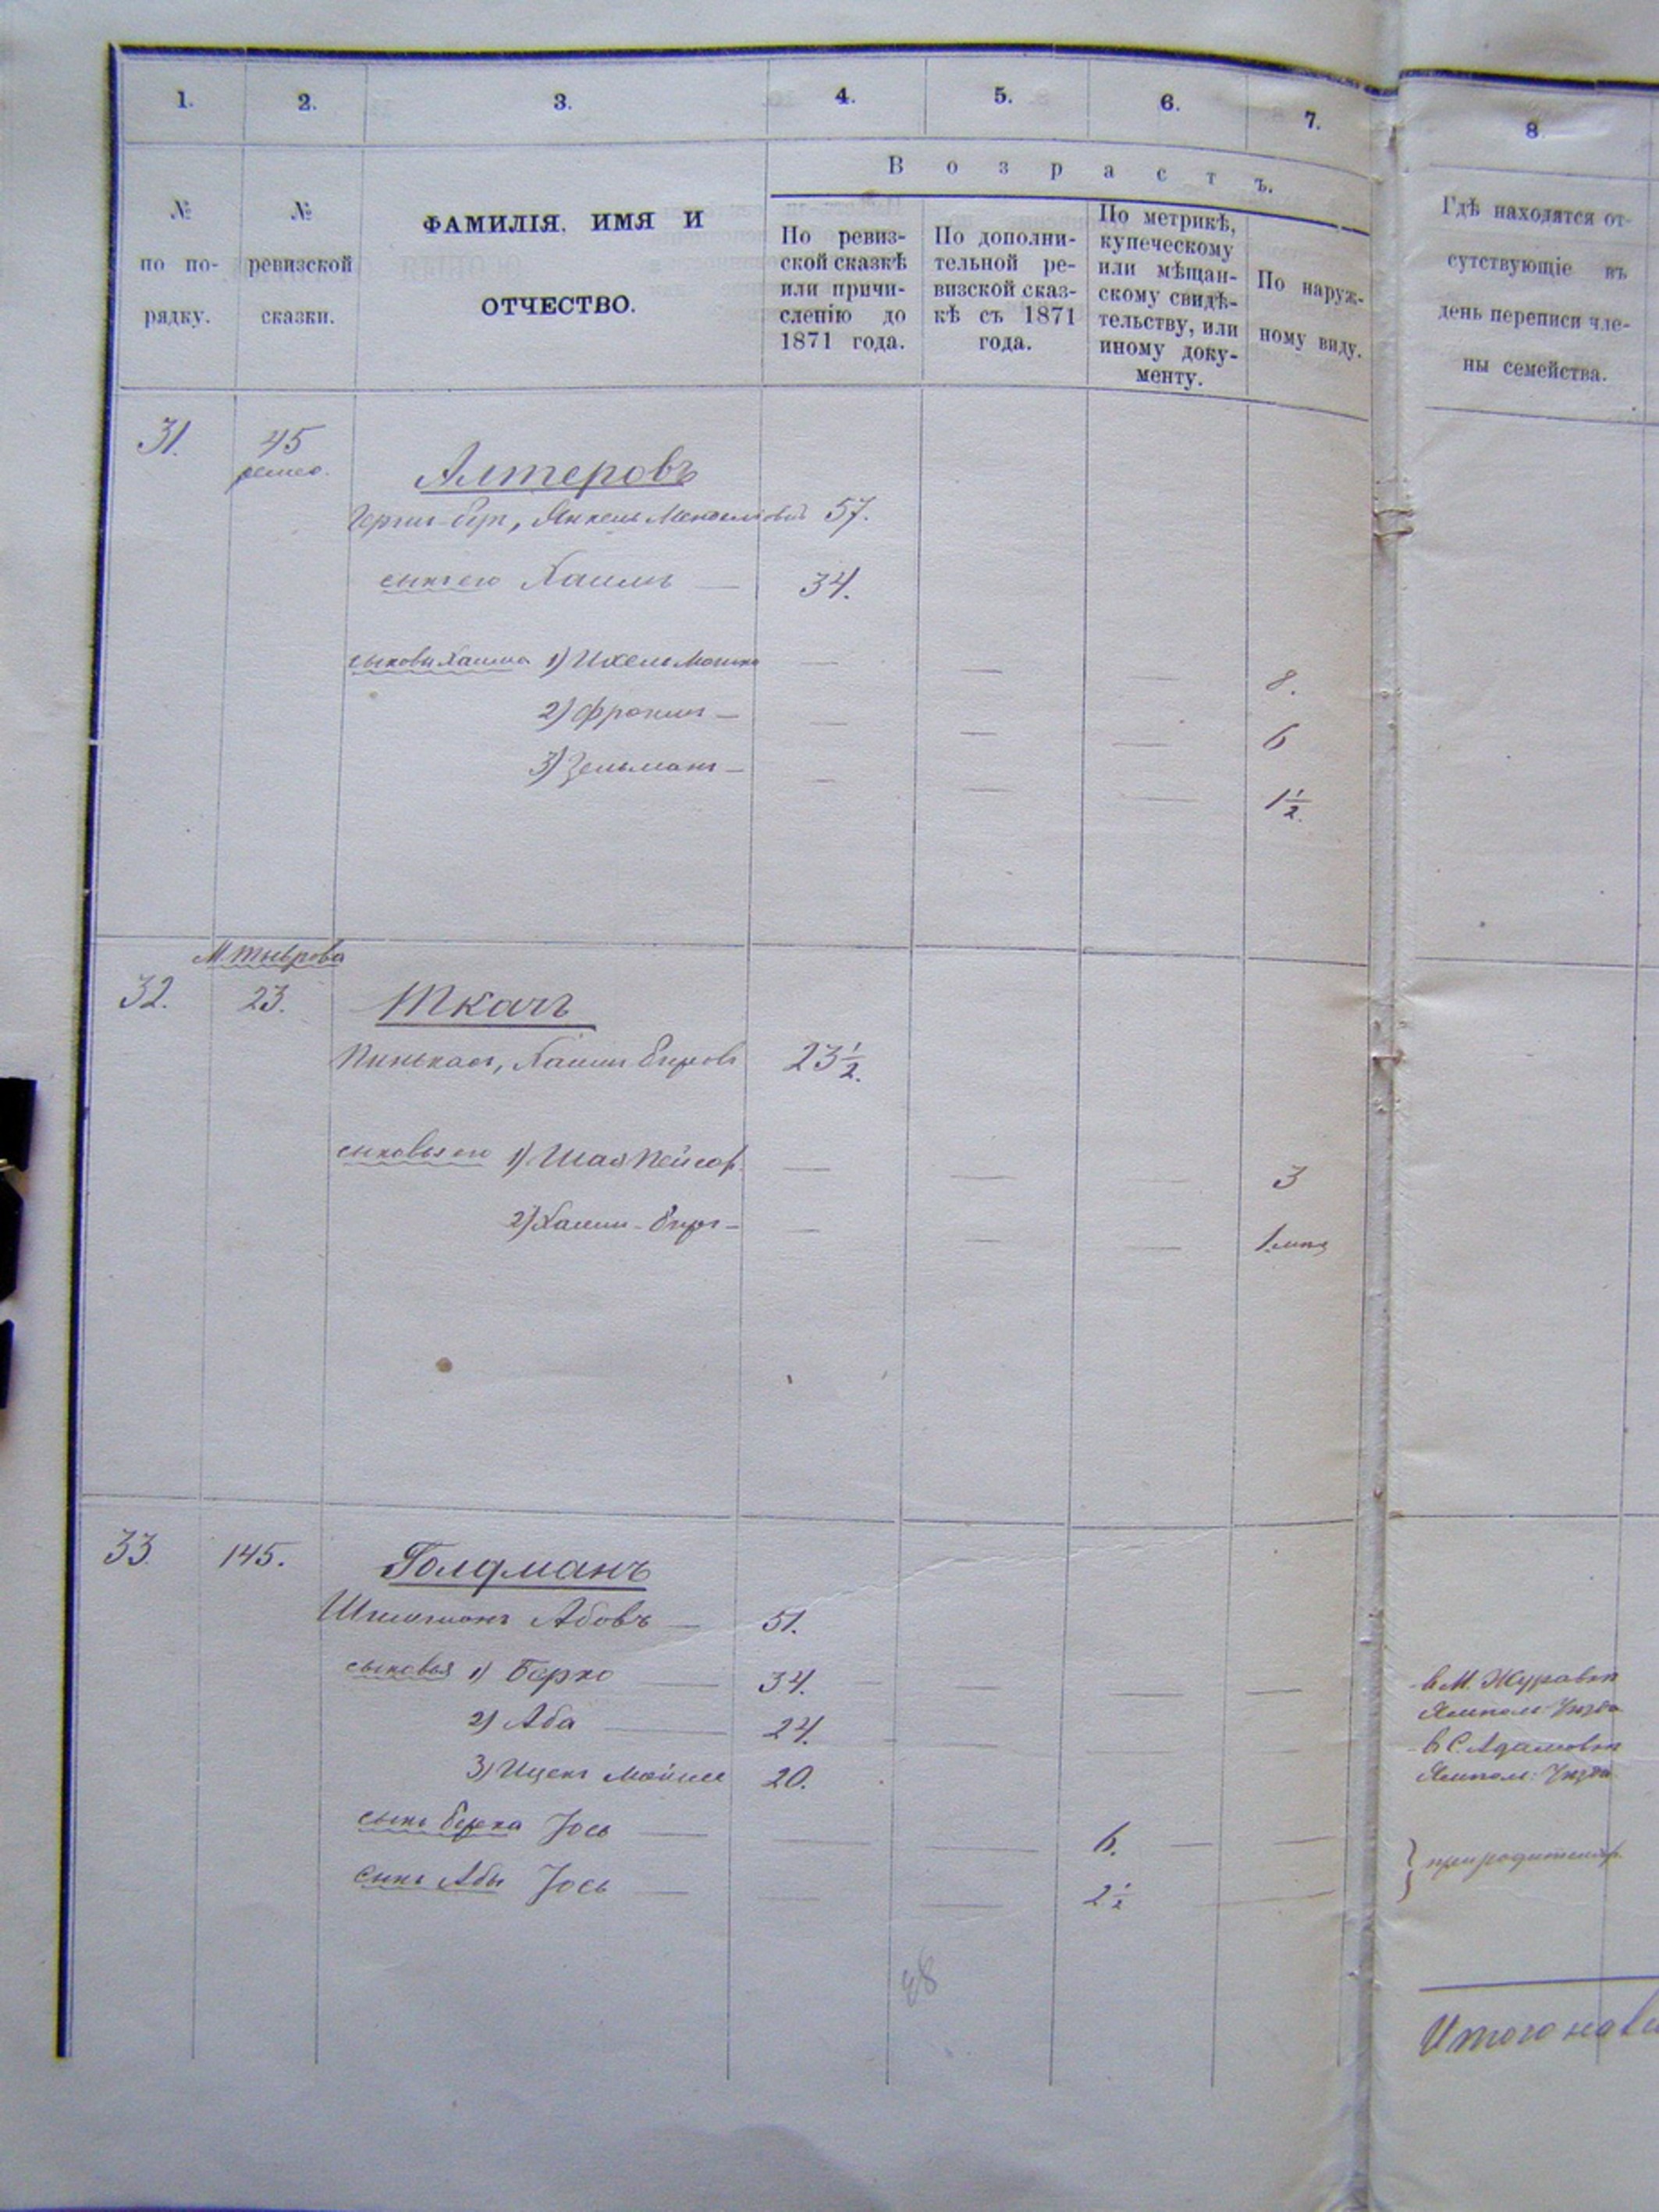 1. 2. 3. 4. 5. 6. 7. 8
В о з р а с т ъ.
№ по по-рядку.
№ ревизской сказки.
ФАМИЛІЯ, ИМЯ И
ОТЧЕСТВО.
По ревиз-
ской сказкѣ
или причи-
сленію до
1871 года.
По дополни-
тельной ре-
визской сказ-
кѣ съ 1871
года.
По метрикѣ,
купеческому
или мѣщан-
скому свидѣ-
тельству, или
иному доку-
менту.
По наруж-
ному виду.
Гдѣ находятся от-
сутствующіе въ
день переписи чле-
ны семейства.
31. 45
Алтеровъ
Янкель Менделіовъ 57.
сынъ его Хаимъ — 34.
сыновья Хаима 1) Ихель Мошко — — — 8.
2) Фроимъ — — — — 6
3) Зельманъ — — — — 1½.
32. 23. Ткачъ
Пинькасъ, Хаимъ Беровъ 23½.
сыновья его 1) Шая Пейсах. — — — 3
2) Хаимъ-Беръ — — — — 1 мца
33. 145. Голдманъ
Шлиомонъ Абовъ — 51.
сыновья 1) Берко — 34. — — — в М. Журавкѣ
Ямпол: Уѣзда
2) Аба — 24. — — — в С. Адамовкѣ
3) Ицекъ Мойше 20. Ямпол: Уѣзда
сынъ Берка Іось — — — 6. — —
сынъ Абы Іось — — — 2½ — — } при родителях.
48
Итого на